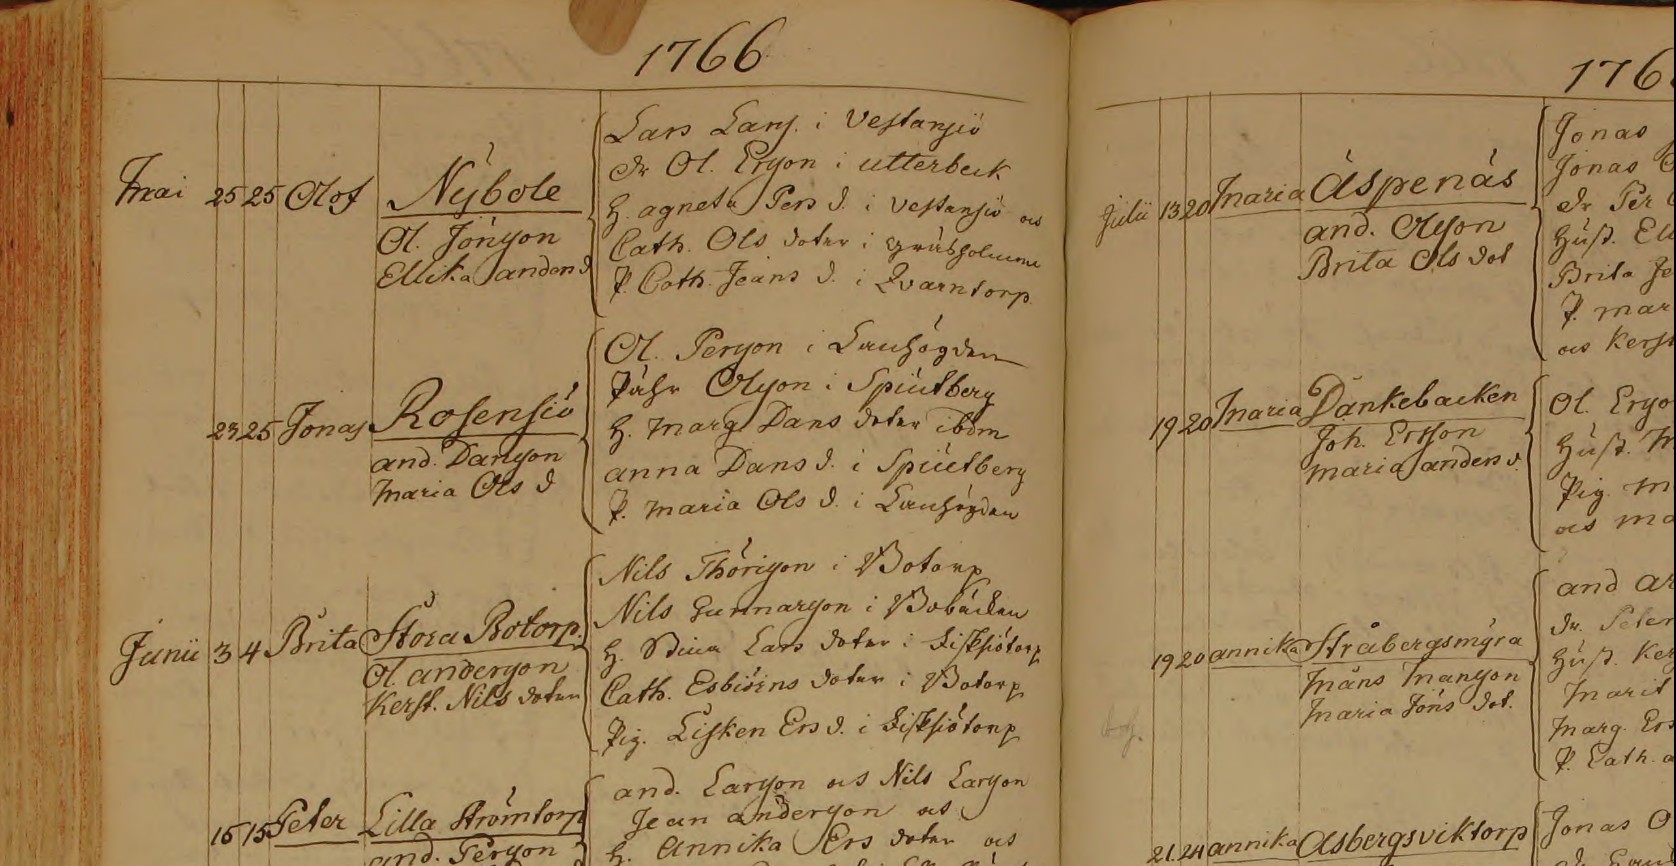 1766
Maii 25 25 Olof Nybole
Ol. Jönson
Ellika anders d
Lars Lars. i Vestansiö
dr Ol. Erson i utterbeck
H. agneta Pers d. i Vestansiö as
Cath. Ols doter i gräsholmen
P. Cath. Jeans d. i Qvarntorp
23 25 Jonas Rosensiö
and. Danson
Maria Ols d
Ol. Person i Lanhögden
Påhr Olson i Spiutberg
H. Marg Dans doter ibdm
anna Dans d. i Spiutberg
P. Maria Ols d. i Lanhögden
Junii 3 4 Brita Stora Botorp
Ol. anderson
Kerst. Nils doter
Nils Thörison i Botorp
Nils Gunnarson i Bobäcken
H. Lars doter i Fisksiötorp
Cath. Esbiörns doter i Botorp
Pig. Lisken Ers d. i Fisksiötorp
15 15 Peter Lilla Strömtorp
and. Person
and. Larson as Nils Larson
Jean anderson as
H. Annika Ers doter as
176
Julii 13 20 Maria Aspenäs
and. Olson
Brita Ols dot
Jonas
Jonas
dr Per
Hust. Eli
Brita Je
P. mar
as Kerst
19 20 Maria Dankebacken
Joh. Erson
Maria anders d.
Ol. Erso
Hust. M
Pig. M
as Ma
19 20 annika Stråbergsmyra
Måns Månson
Maria Jöns dot.
and ar
dr. Peter
Hust. Ker
Marit
Marg. Ers
P. Cath. a
21 24 annika Asbergsviktorp
Jonas O